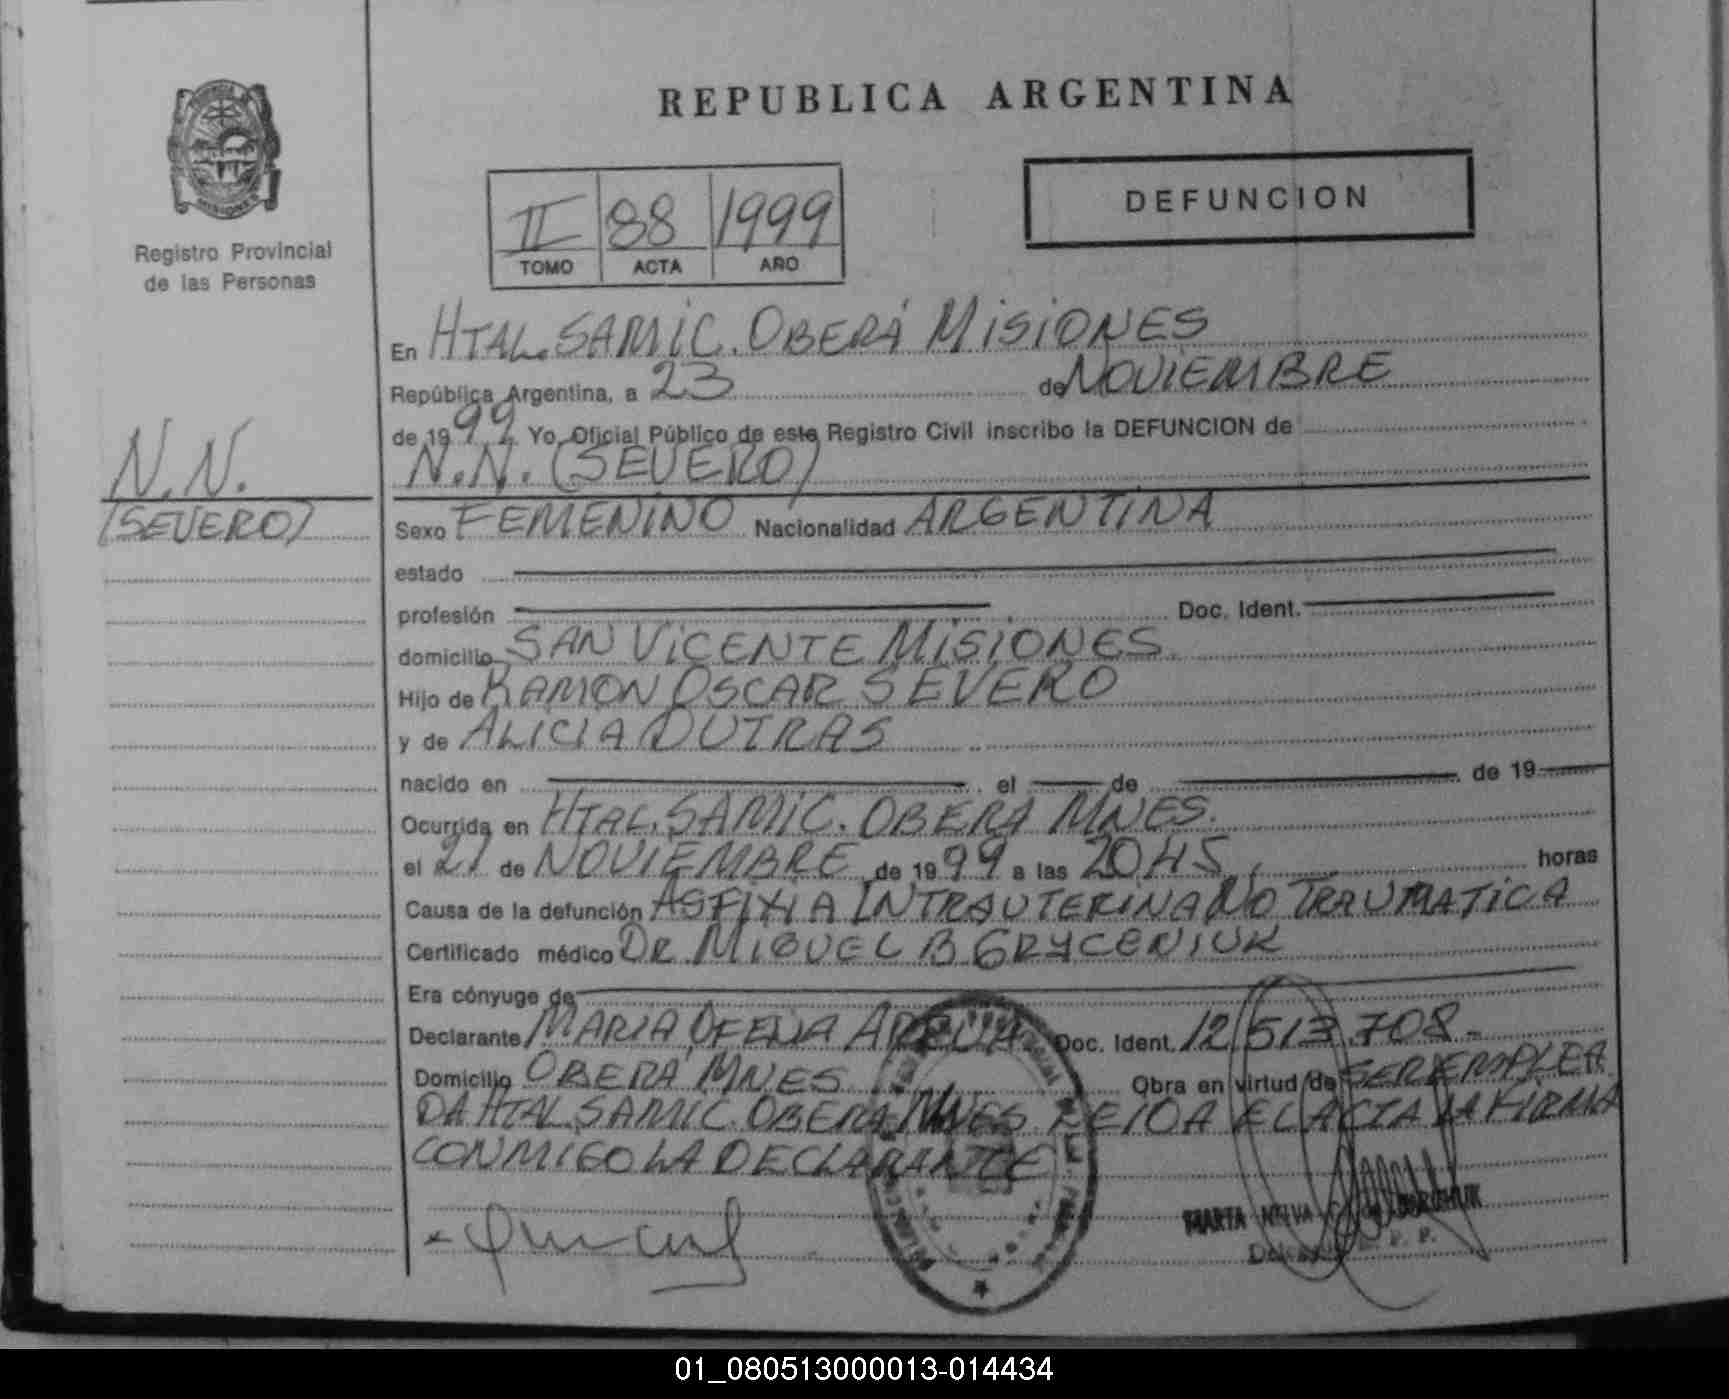 REPUBLICA ARGENTINA
MISIONES
Registro Provincial
de las Personas
DEFUNCION
II 88 1999
TOMO ACTA AÑO
En HTAL. SAMIC. OBERÁ MISIONES
República Argentina, a 23 de NOVIEMBRE
de 1999 Yo, Oficial Público de este Registro Civil inscribo la DEFUNCION de
N.N. (SEVERO)
N.N.
(SEVERO)
Sexo FEMENINO Nacionalidad ARGENTINA
estado
profesión Doc. Ident.
domicilio SAN VICENTE MISIONES
Hijo de RAMON OSCAR SEVERO
y de ALICIA DUTRAS
nacido en el de de 19
Ocurrida en HTAL. SAMIC. OBERA MNES.
el 21 de NOVIEMBRE de 1999 a las 2045 horas
Causa de la defunción ASFIXIA INTRAUTERINA NO TRAUMATICA
Certificado médico DR. MIGUEL B GRYCENIUK
Era cónyuge de
Declarante MARIA Doc. Ident. 12.513.708-
Domicilio OBERA MNES Obra en virtud de SER EMPLEA
DA HTAL. SAMIC. OBERA MNES LEIDA EL ACTA LA FIRMA
CONMIGO LA DECLARANTE
MARTA
01_080513000013-014434